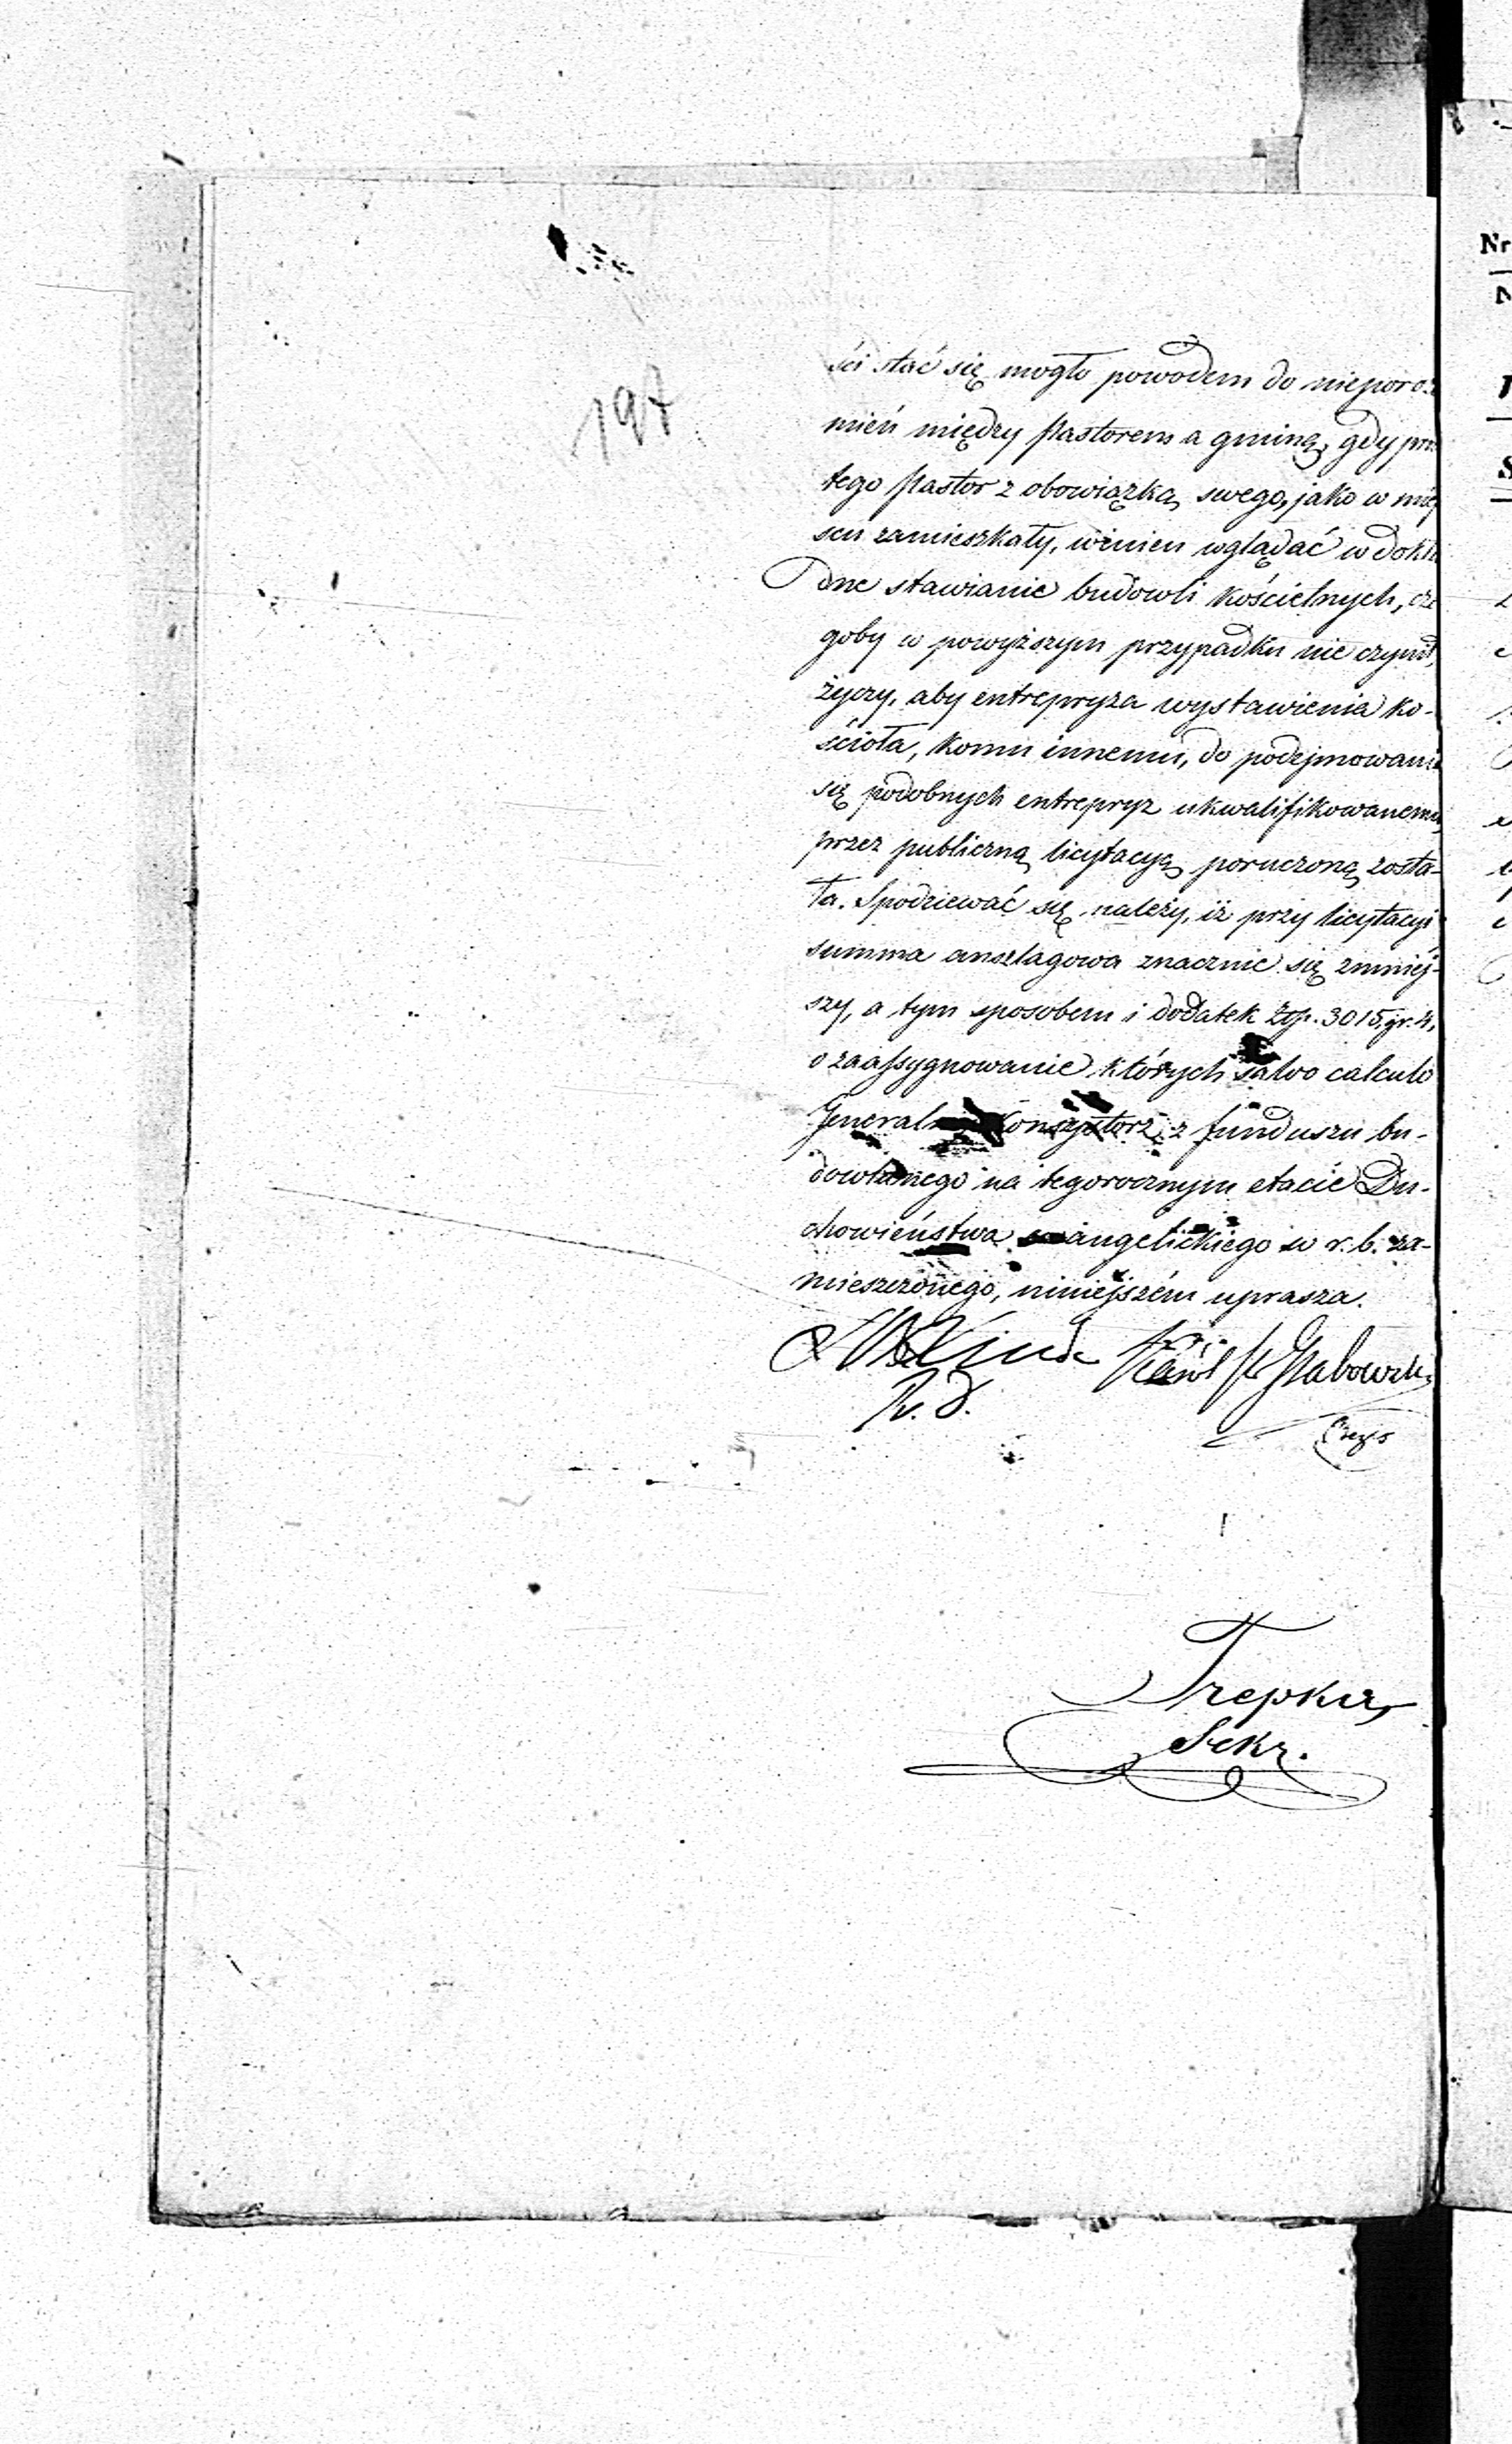 197
ści stać się mogło powodem do nieporoz
mień między Pastorem a gminą, gdy prz
tego Pastor z obowiązku swego, jako w miej
scu zamieszkały, winien wglądać w dokła
dne stawianie budowli kościelnych, cze
goby w powyższym przypadku nie czynił,
życzy, aby entrepryza wystawienia ko-
ścioła, komu innemu, do podejmowania
się podobnych entrepryz ukwalifikowanemu,
przez publiczną licytacyą poruczoną zosta-
ła. Spodziewać się należy, iż przy licytacyi
summa anszlagowa znacznie się zmniej-
szy, a tym sposobem i dodatek Złp. 3015. gr. 4,
o zaassygnowanie których salvo calculo
Jeneralny Konsystorz z funduszu bu-
dowlanego na tegorocznym etacie Du-
chowieństwa ewangelickiego w r. b. za-
mieszczonego, niniejszém uprasza.
Karól Hr Grabowski
Trepka,
Sekr.
Nr